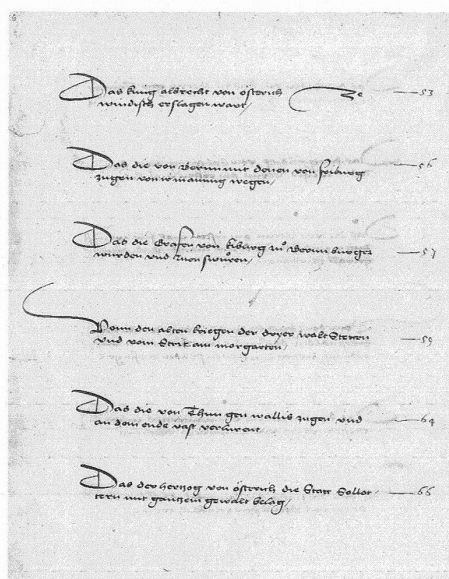 Das küng albrecht von österich 53
windisch erslagen wart
Das die von Bernn mit denen von friburg 56
zugen von manung wegen
Das die Grafen von kiburg zuo Bernn burger 57
wurden und inen swuoren
Vonn den alten kriegen der dryer waltStetten 59
Vnd vom Strit am morgarten
Das die von Thun gen wallis zugen vnd 64
an dem ende vast verlurent
Das der hertzog von österich die Statt Sollot 66
tern mit gantzem gewalt belag